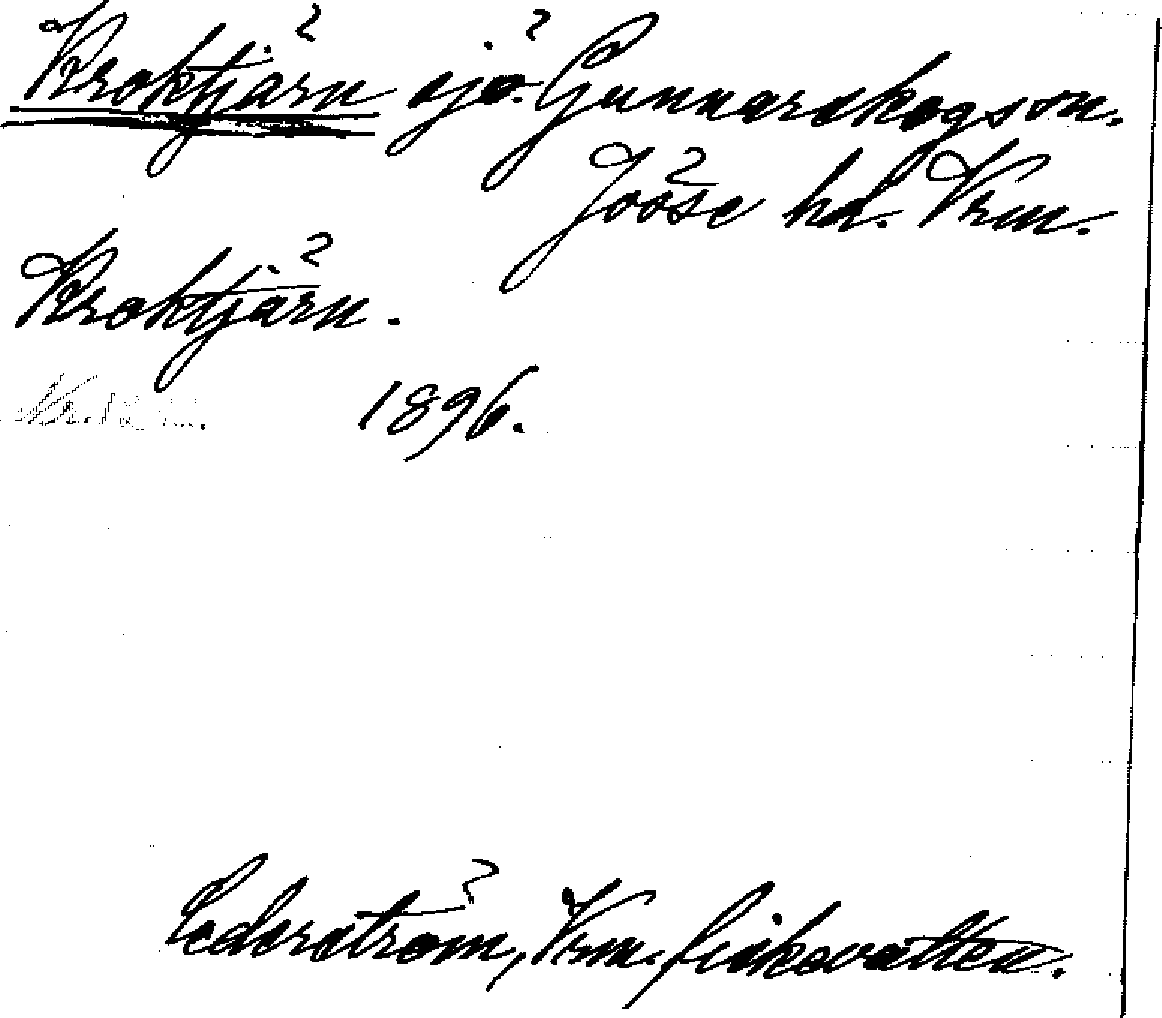 Kroktjärn sjö. Gunnarskogs sn.
Jösse hd. Vrm.
Kroktjärn.
1896.
Cederström, Vrm. fiskevatten.